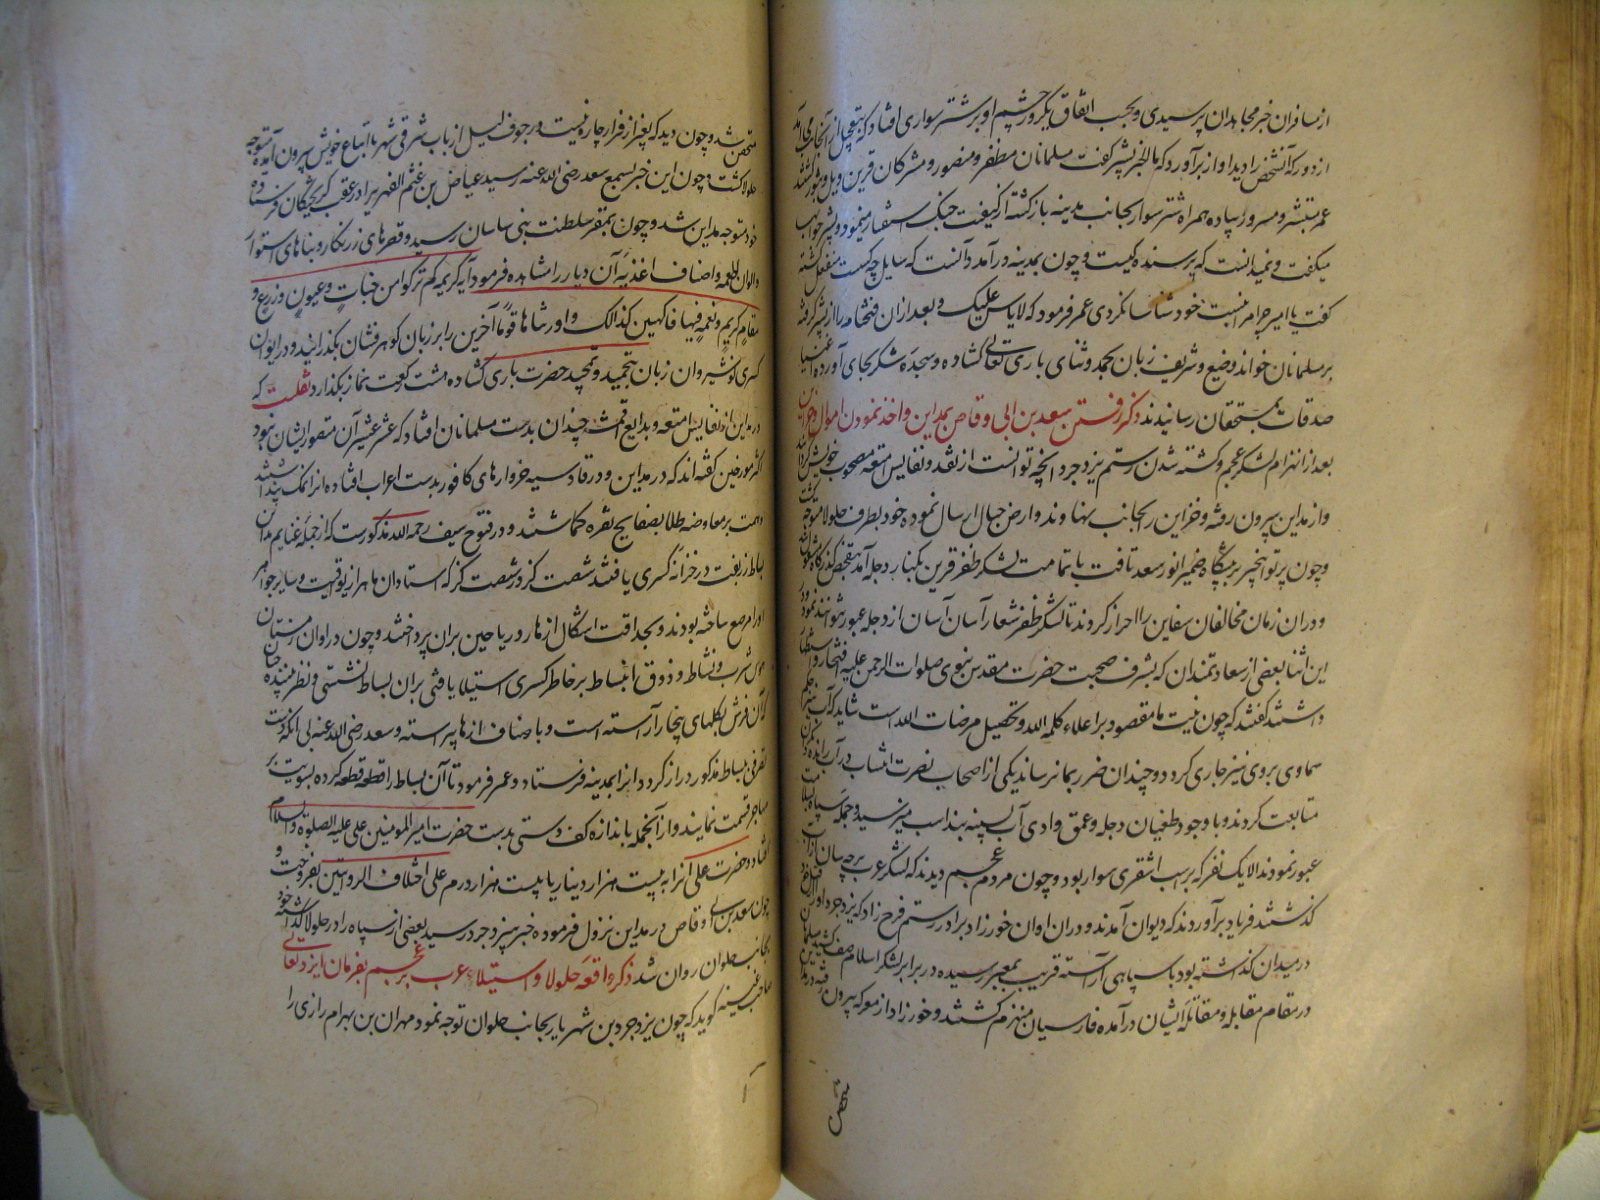 از مسافران خبر مجاهدان پرسیدی و بحسب اتفاق یکروز چشم او بر شتر سواری افتاد که بتعجیل از آنجانب می آمد
از دور که آنشخص را دید آواز برآورد که ما الخبر بشیر گفت مسلمانان مظفر و منصور و مشرکان قرین ویل و ثبور گشتند
عمر مستبشر و مسرور پیاده همراه شتر سوار بجانب مدینه بازگشته از کیفیت جنک استفسار مینمود و بشیر جواب
میگفت و نمیدانست که پرسنده کیست و چون بمدینه درآمد دانست که سایل چه کس است منفعل گشته
گفت یا امیر چرا مرا بنسبت خود شناسا نکردی عمر فرمود که لاباس علیک و بعد ازان فتحنامه را از بشیر گرفته
بر مسلمانان خواند وضیع و شریف زبان بحمد و ثنای باری تعالی گشاده و سجده شکر بجای آورده اغنیا
صدقات بمستحقان رسانیدند ذکر رفتن سعد بن ابی وقاص بمداین و اخذ نمودن اموال و خزاین
بعد از انهزام لشکر عجم و کشته شدن رستم یزدجرد آنچه توانست از نقد و نفایس امتعه مصحوب خویش گردانیده
و از مداین بیرون رفته و خزاین را بجانب نهاوند و ارض جبال ارسال نموده خود بطرف جلولا متوجه گشت
و چون پرتو اینخبر بر پیشگاه ضمیر انور سعد تافت با تمامت لشکر ظفر قرین بکنار دجله آمد بتفحص گذرگاه مشغول شد
و دران زمان مخالفان سفاین را احراز کردند تا لشکر ظفر شعار آسان آسان از دجله عبور نتوانند نمود در
این اثنا بعضی از سعادتمندان که بشرف صحبت حضرت مقدس نبوی صلوات الرحمن علیه افتخار و استظهار
داشتند گفتند که چون نیت ما مقصود بر اعلاء کلمه الله و تحصیل مرضات الله است شاید که آب نیز بحکم
سماوی بر وی نیز جاری گردد و چندان ضرر بما نرساند یکی از اصحاب نصرت انتساب در آب رانده دیگران
متابعت کردند و با وجود طغیان دجله و عمق وادی آب بسینه بند اسب میرسید و جمله سپاه بسلامت
عبور نمودند الا یک نفر که بر اسب اشقری سوار بود و چون مردم عجم دیدند که لشکر عرب بر چه سان از آب
گذشتند فریاد برآوردند که دیوان آمدند و دران اوان خورزاد برادر رستم فرخ زاد که یزدجرد او را
در میدان گذاشته بود با سپاهی آراسته قریب بمعبر رسیده در برابر لشکر اسلام صف کشید
در مقام مقابله و مقاتله ایشان درآمده فارسیان منهزم گشتند و خورزاد از معرکه بیرون
متحصن
متحصن شد و چون دید که بغیر از فرار چاره نیست در جوف لیل از باب شرقی شهر با اتباع خویش بیرون آمده متوجه
جلولا گشت و چون این خبر بسمع سعد رضی الله عنه رسید عیاض بن غنم الفهری را در عقب گریختگان فرستاده
خود متوجه مداین شد و چون بمقر سلطنت بنی ساسان رسید و قصرهای زرنگار و بناهای استوار
و الوان اطعمه و اصناف اغذیه آن دیار را مشاهده فرمود آیه کریمه کم ترکوا من جنات و عیون و زرع و
مقام کریم و نعمه فیها فاکهین کذالک و اورثناها قوما آخرین را بر زبان گوهر فشان بگذرانید و در ایوان
کسری نوشیروان زبان بتحمید و تمجید حضرت باری گشاده هشت رکعت نماز بگذارد نقلست که
در مداین از نفایس امتعه و بدایع اقمشه چندان بدست مسلمانان افتاد که عشر عشیر آن متصور ایشان نبود
اکثر مورخین گفته اند که در مداین و در قادسیه خروارهای کافور بدست اعراب افتاده انرا نمک پنداشتند
همت بر معاوضه طلا بصفایح نقره گماشتند و در فتوح سیف رحمه الله مذکورست که از جمله غنایم مداین
بساط زربفت در خزانه کسری یافتند شصت گز در شصت گز که استادان ماهر از یواقیت و سایر جواهر
اورا مرصع ساخته بودند و بحذاقت اشکال ازهار و ریاحین بران پرداخته و چون در اوان زمستان
هوس شرب و نشاط و ذوق انبساط بر خاطر کسری استیلا یافتی بران بساط نشستی و نظر بیننده چنان
که آن فرش بگلهای بیخار آراسته است و باصناف ازهار پیراسته و سعد رضی الله عنه بی انکه دست
تصرفی ببساط مذکور دراز گرداند انرا بمدینه فرستاد و عمر فرمود تا آن بساط را قطعه قطعه کرده بسویت بر
مهاجر قسمت نمایند و از آنجمله باندازه کف دستی بدست حضرت امیر المومنین علی علیه الصلوة والسلام
افتاد و حضرت علی آنرا به بیست هزار دینار یا بیست هزار درم علی اختلاف الروایتین بفروخت و
چون سعد بن ابی وقاص در مداین نزول فرموده خبر بیزدجرد رسید بعضی از سپاه را در جلولا گذاشته خود
بجانب حلوان روان شد ذکر واقعه جلولا و استیلاء عرب بر عجم بفرمان ایزد تعالی
صاحب غنیه گوید که چون یزدجرد بن شهریار بجانب حلوان توجه نمود مهران بن بهرام رازی را